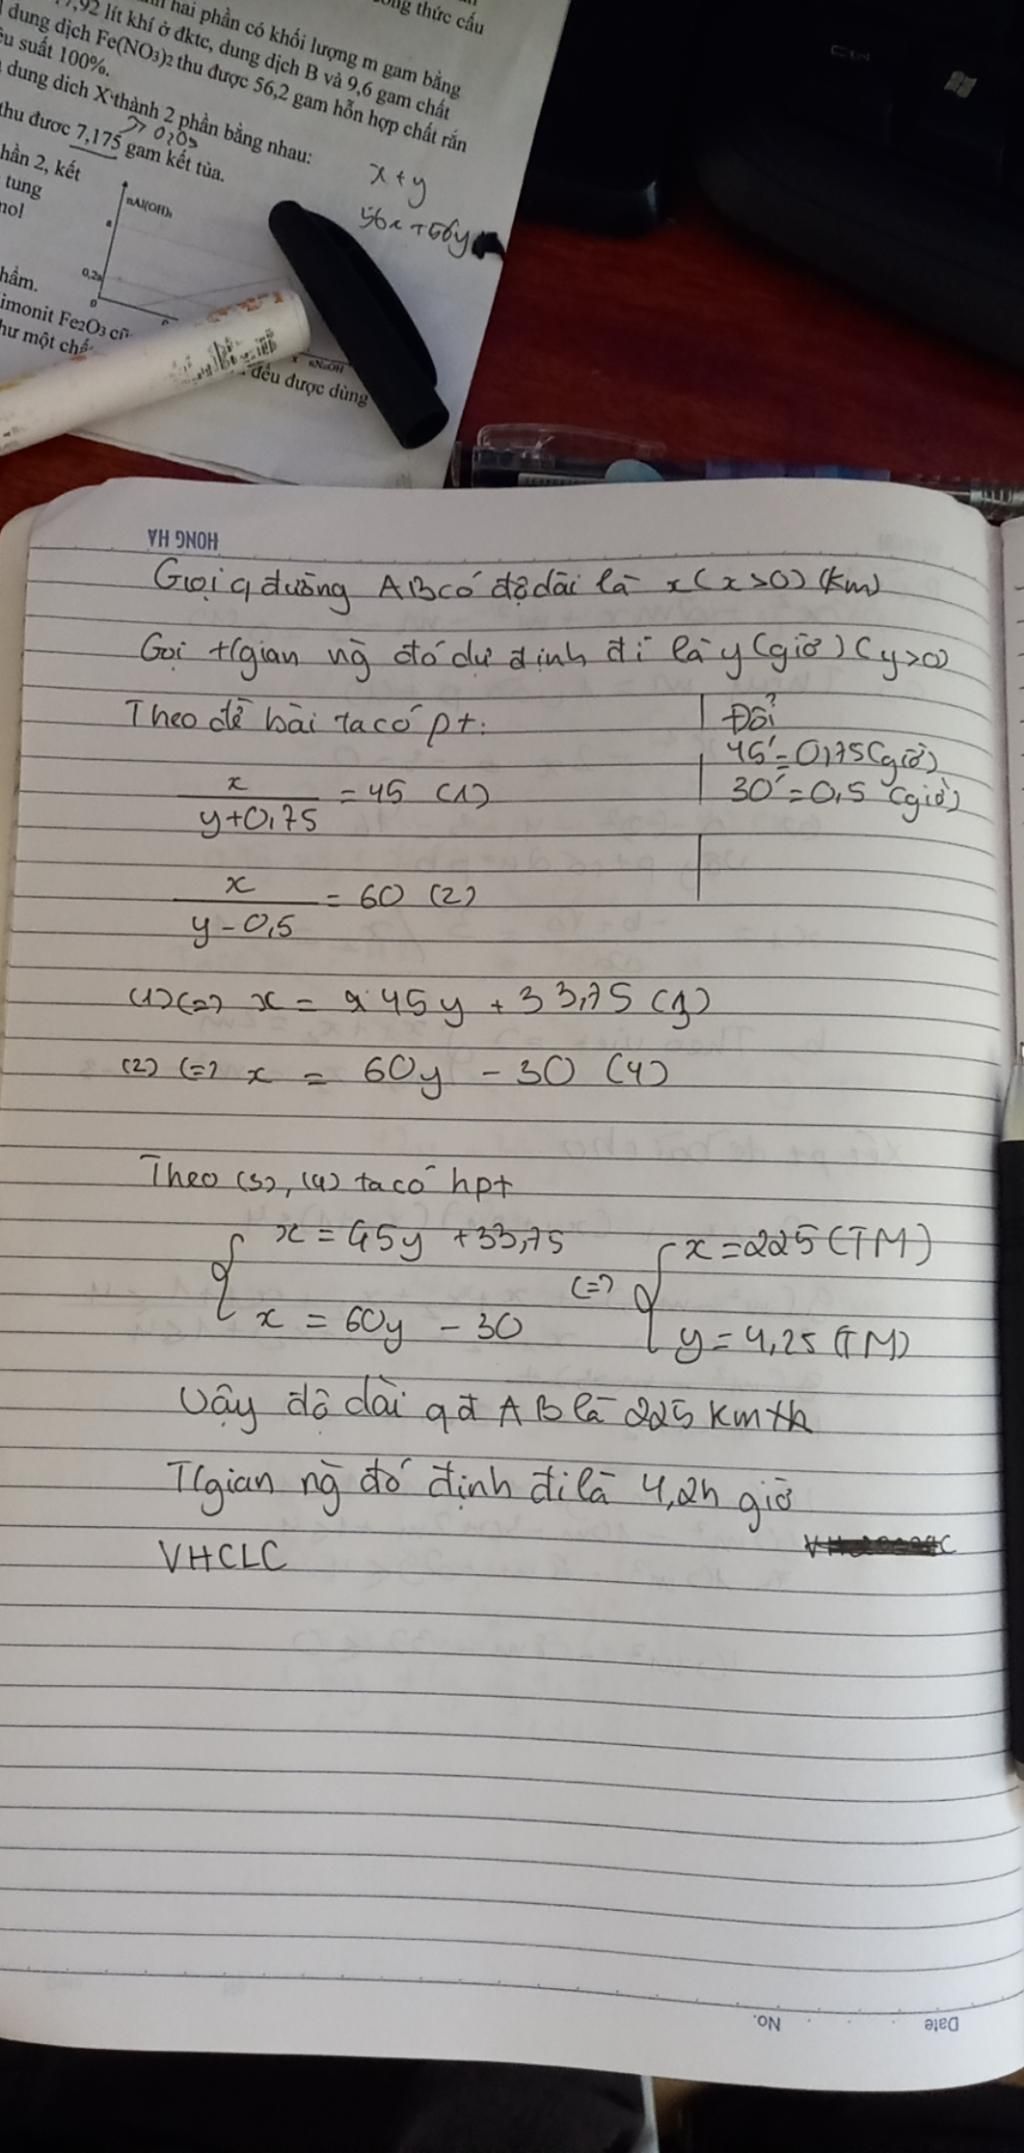 ông thức cấu
hai phần có khối lượng m gam bằng
7,92 lít khí ở đktc, dung dịch B và 9,6 gam chất
dung dịch Fe(NO3)2 thu được 56,2 gam hỗn hợp chất rắn
u suất 100%.
dung dich X thành 2 phần bằng nhau:
thu được 7,175 gam kết tủa.
hần 2, kết
tung
mol
nAl(OH)3
a
0,2a
0
x + y
56x + 56y
hẩm.
imonit Fe2O3 cũ
hư một chấ
x nNaOH
đều được dùng
HONG HA
Gọi q đường AB có độ dài là x (x>0) (km)
Gọi t/gian ng đó dự định đi là y (giờ) (y>0)
Theo đề bài ta có pt:
Đổi
45' = 0,75 (giờ)
30' = 0,5 (giờ)
x / (y+0,75) = 45 (1)
x / (y-0,5) = 60 (2)
(1) (=) x = 45y + 33,75 (3)
(2) (=) x = 60y - 30 (4)
Theo (3), (4) ta có hpt
{ x = 45y + 33,75
x = 60y - 30
(=) { x = 225 (TM)
y = 4,25 (TM)
Vậy độ dài qđ AB là 225 km
T/gian ng đó định đi là 4,25 giờ
VHCLC
Date
No.